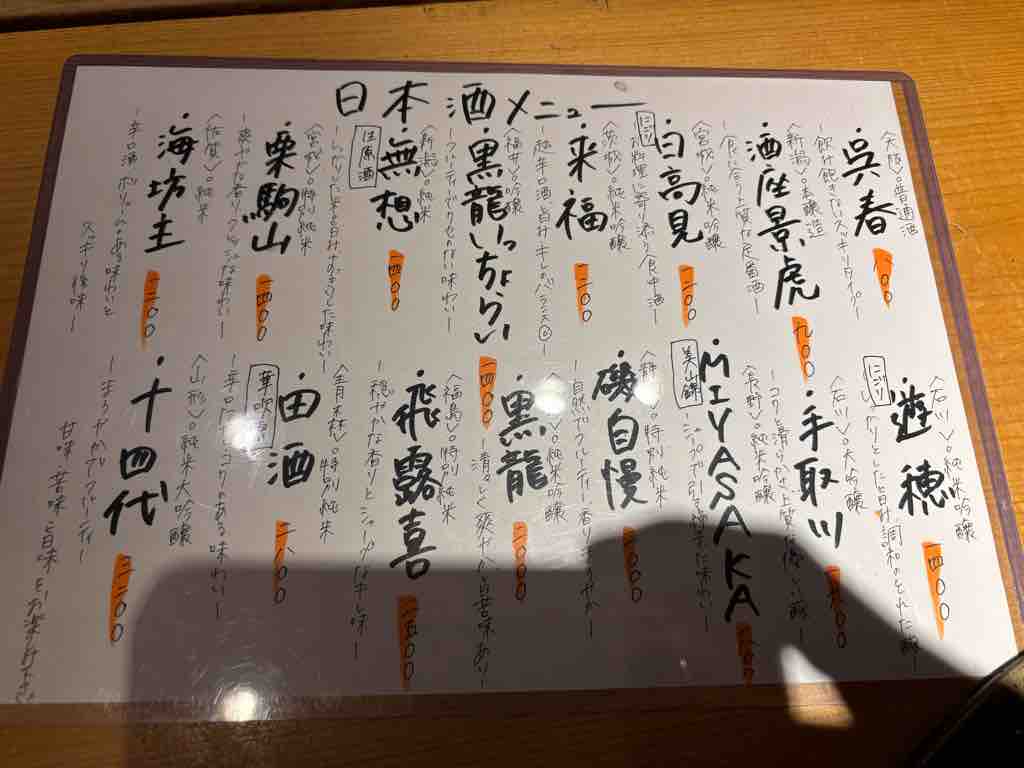 日本酒メニュー
・呉春 八〇〇
〈大阪〉○普通酒
ー飲み飽きないスッキリタイプー
・酒座景虎 九〇〇
〈新潟〉○本醸造
ー食に合う上質な定番酒ー
・日高見 一二〇〇
〈宮城〉○純米吟醸
ーお料理に寄り添う食中酒ー
にごり
・来福 一二〇〇
〈茨城〉○純米吟醸
ー超辛口酒、旨味・キレのバランス◎ー
・黒龍いっちょらい 一四〇〇
〈福井〉○吟醸
ーフルーティでクセのない味わいー
・無想 一四〇〇
〈新潟〉○純米
生原酒
・栗駒山 一四〇〇
〈宮城〉○特別純米
ー爽やかな香り・フレッシュな味わいー
・海坊主 一二〇〇
〈佐賀〉○純米
ー辛口酒、ボリュームのある味わいと
スッキリ後味ー
・遊穂 一四〇〇
〈石川〉○純米吟醸
にごり
とした旨味、調和のとれた酸ー
・手取川
〈石川〉○大吟醸
ーコクと清らかさ、上質な優しい酸ー
・MIYASAKA
〈長野〉○純米吟醸
美山錦
・磯自慢
特別純米
ー自然でフルーティー香りさわやかー
・黒龍 二〇〇〇
純米吟醸
ー清々しく爽やかな旨味ありー
・飛露喜 二五〇〇
〈福島〉○特別純米
ー穏やかな香りとシャープなキレ味ー
・田酒 二八〇〇
〈青森〉○特別純米
華吹雪
コクのある味わいー
・十四代 三二〇〇
〈山形〉○純米大吟醸
ーまろやかでフルーティー
甘味・辛味・旨味をお楽しみ下さい